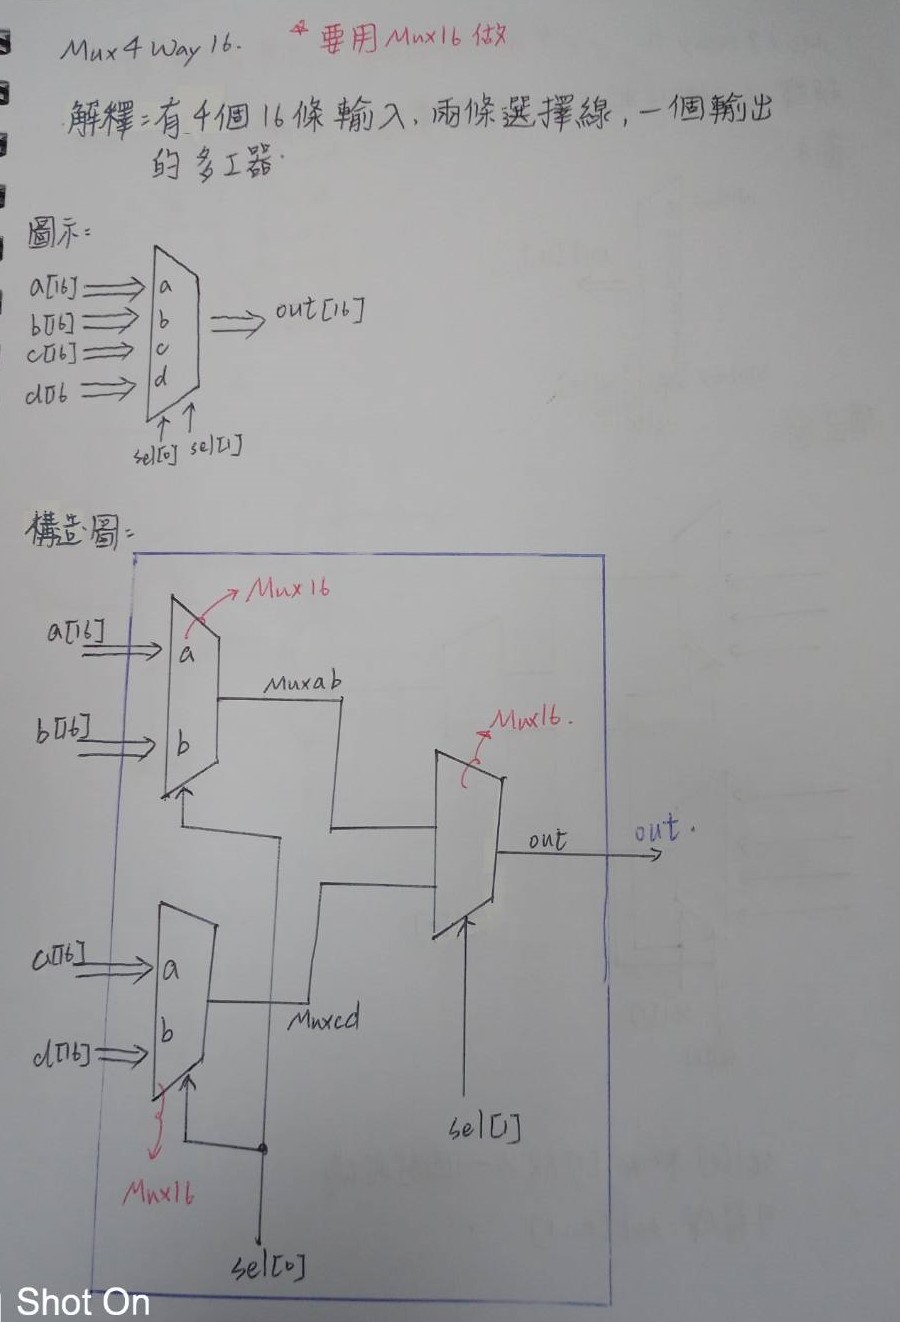 Mux 4 Way 16. * 要用 Mux16 做
解釋：有 4個 16 條輸入, 兩條選擇線, 一個輸出
的多工器.
圖示：
a[16]
b[16]
c[16]
d[16
a
b
c
d
out[16]
sel[0] sel[1]
構造圖：
Mux16
a[16]
a
b[16]
b
Muxab
Mux16.
out
out.
c[16]
a
d[16]
b
Muxcd
Mux16
sel[1]
sel[0]
Shot On